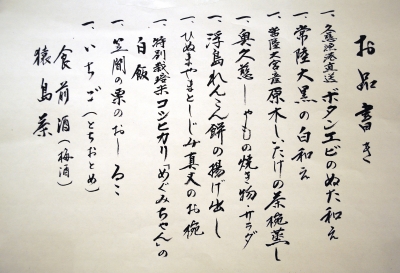 お品書き
一、久慈漁港直送 ボタンエビのぬた和え
一、常陸大黒の白和え
一、常陸大宮産 原木しいたけの茶椀蒸し
一、奥久慈しゃもの焼き物・サラダ
一、浮島れんこん餅の揚げ出し
一、ひぬまやまとしじみ真丈のお椀
一、特別栽培米コシヒカリ「めぐみちゃん」の
白飯
一、笠間の栗のおしるこ
一、いちご(とちおとめ)
食前酒(梅酒)
猿島茶